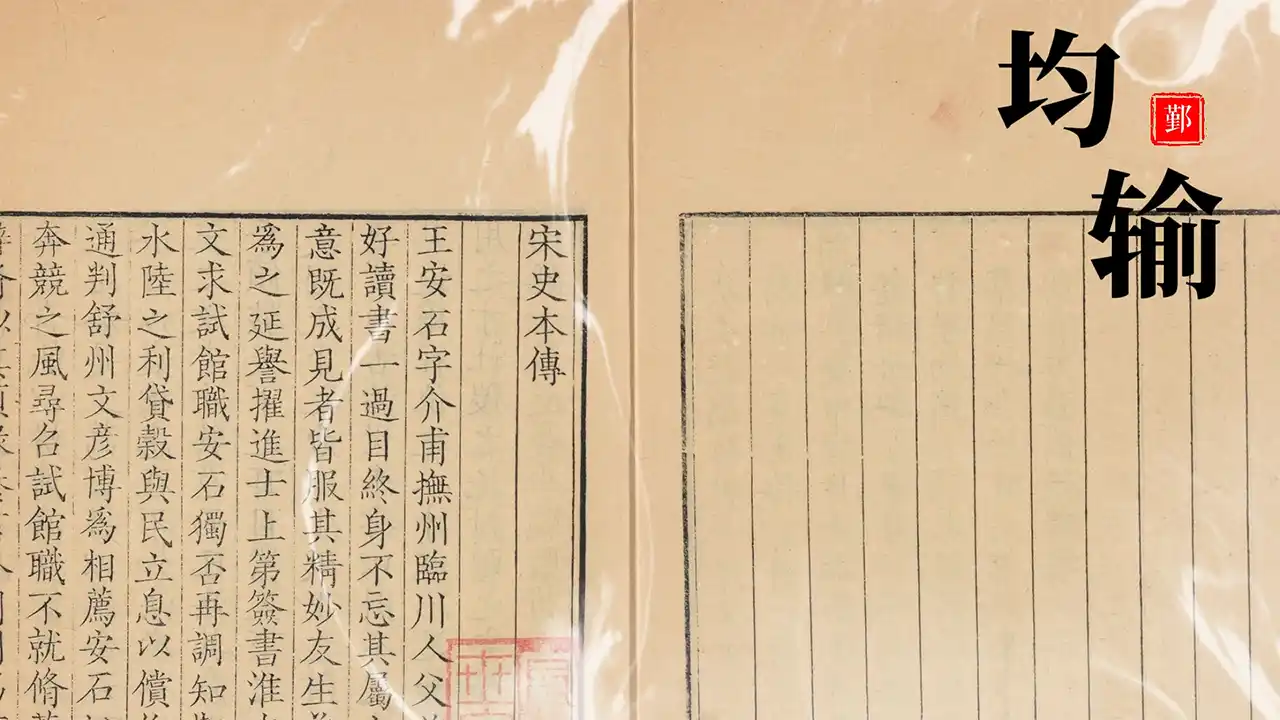 均输
鄞
宋史本傳
王安石字介甫撫州臨川人父
好讀書一過目終身不忘其屬
意既成見者皆服其精妙友生
爲之延譽擢進士上第簽書淮
文求試館職安石獨否再調知
水陸之利貸穀與民立息以償
通判舒州文彥博爲相薦安石
奔競之風尋召試館職不就脩